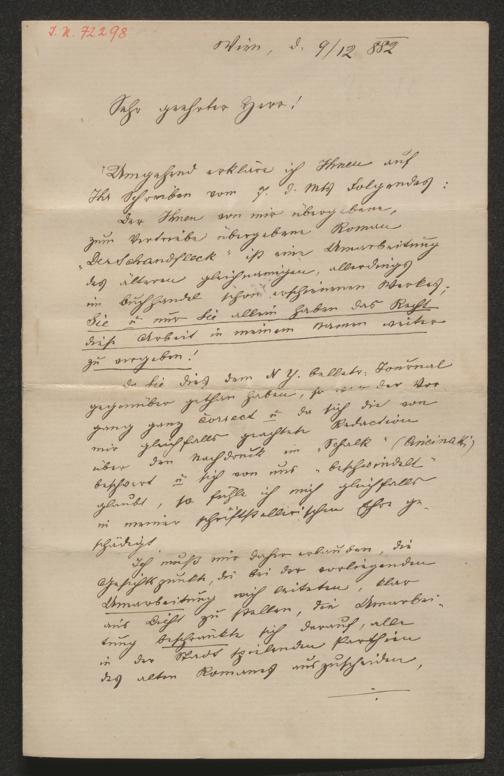 J. N. 72298
Wien, d. 9/12 882
Sehr geehrter Herr!
Umgehend erkläre ich Ihnen auf
Ihr Schreiben vom 7. d. Mts Folgendes:
Der Ihnen von mir übergebene,
zum Vertriebe übergebene Roman
„Der Schandfleck" ist eine Umarbeitung
des älteren gleichnamigen, allerdings
im Buchhandel schon erschienenen Werkes;
Sie u nur Sie allein haben das Recht
diese Arbeit in meinem Namen weiter
zu vergeben!
Da Sie dies dem N Y. belletr. Journal
gegenüber gethan haben, so war der Vor
gang ganz correct u da sich die von
mir gleichfalls geachtete Redaction
über den Nachdruck im „Schalk"
beschwert u sich von uns „beschwindelt"
glaubt, so fühle ich mich gleichfalls
in meiner schriftstellerischen Ehre ge-
schädigt.
Ich muß mir daher erlauben, die
Gesichtspunkte, die bei der vorliegenden
Umarbeitung mich leiteten, klar
aus Licht zu stellen, die Umarbei-
tung beschränkte sich darauf, alle
in der Stadt spielenden Parthien
des alten Romanes auszuscheiden,